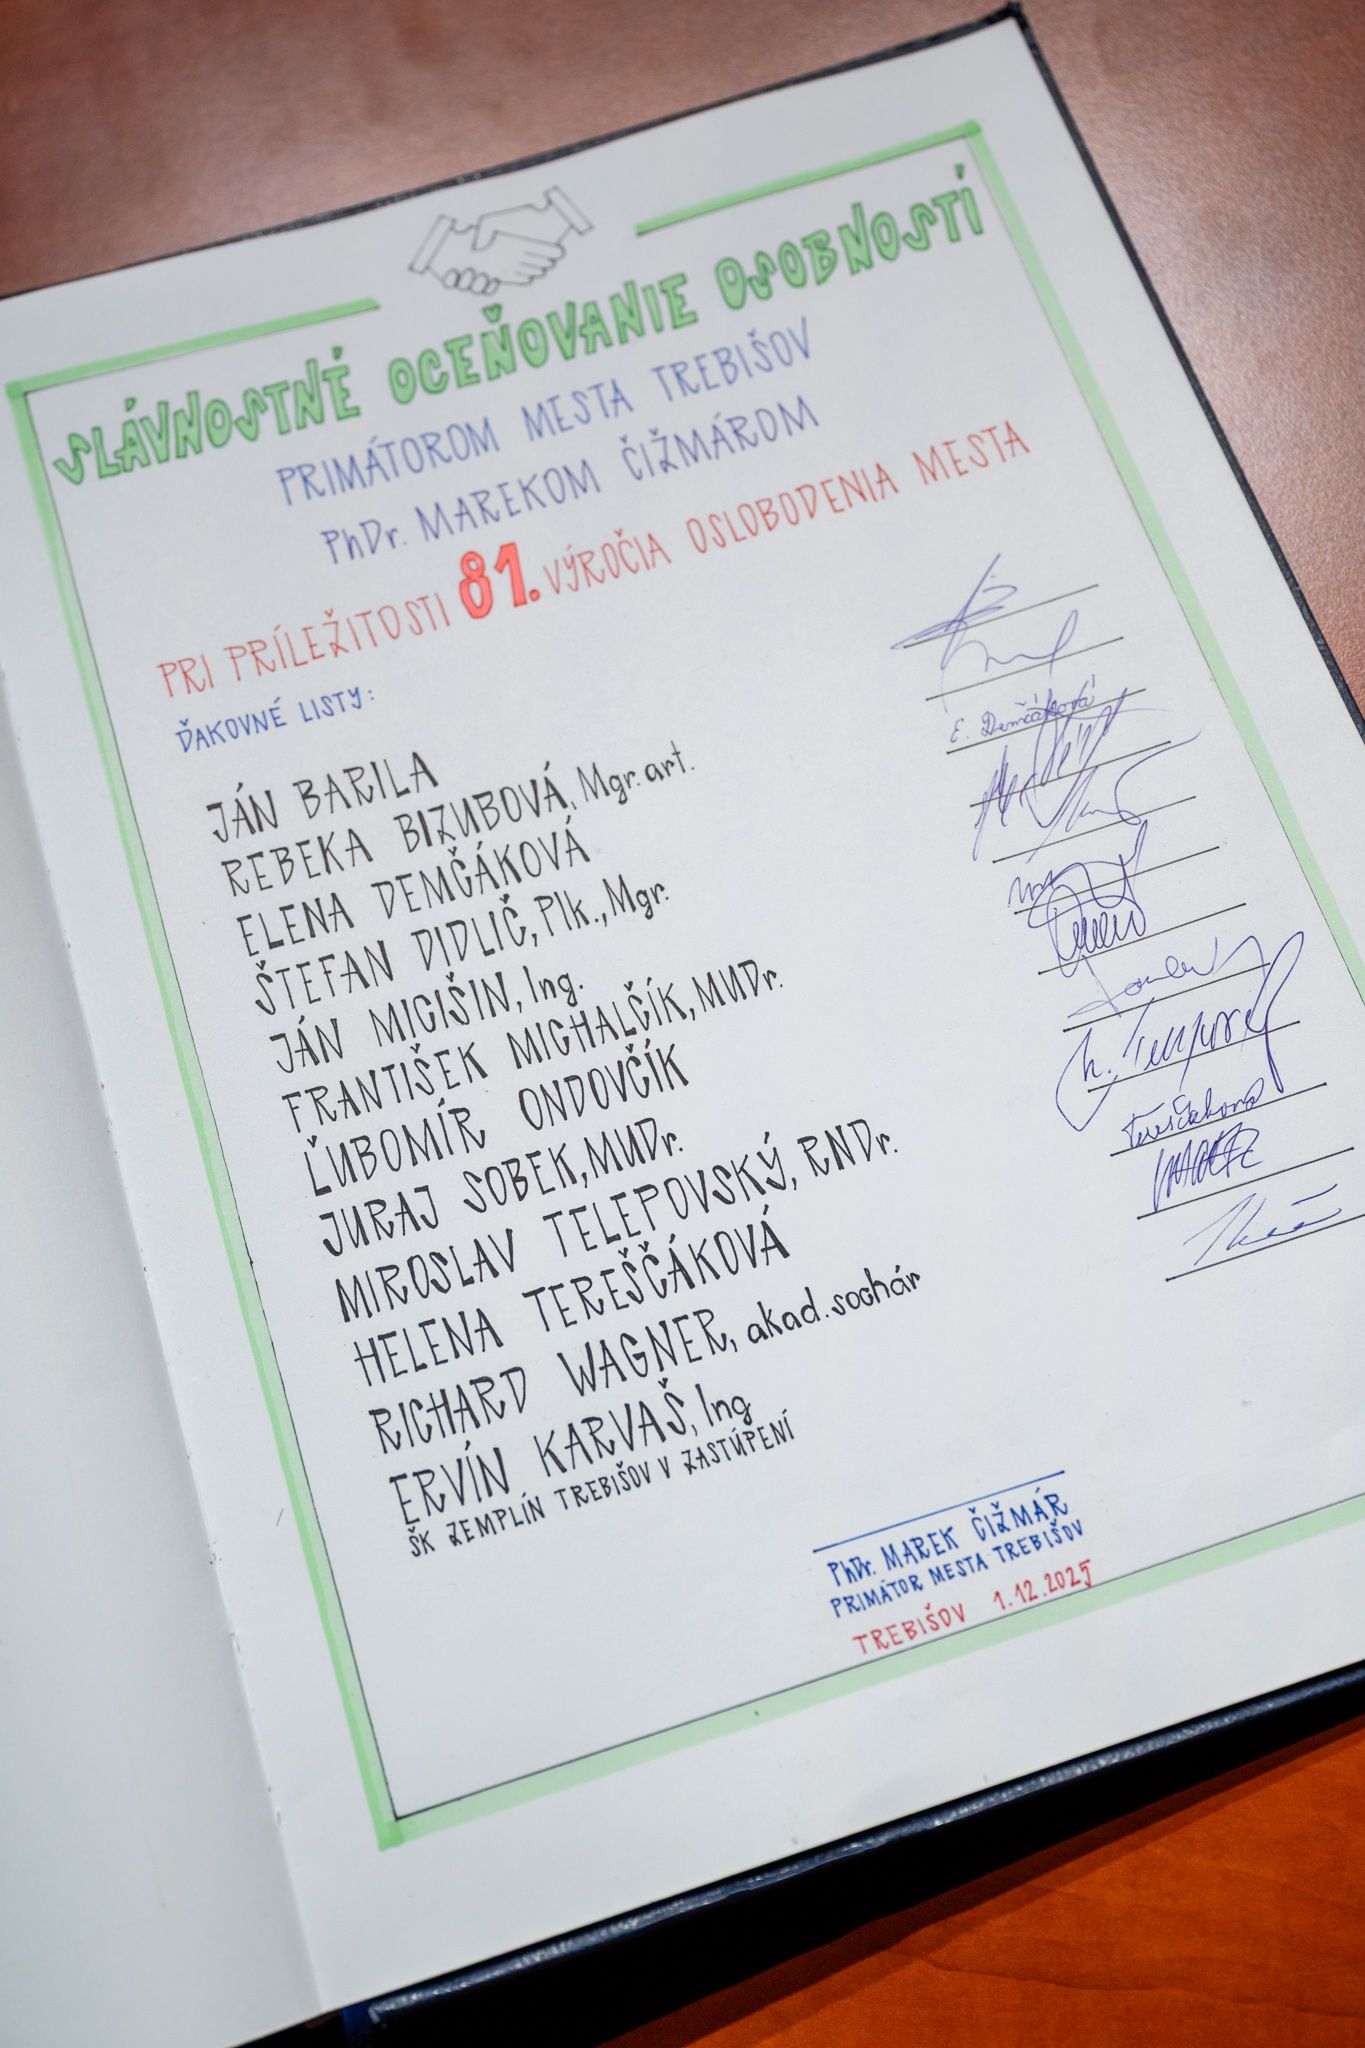 SLÁVNOSTNÉ OCEŇOVANIE OSOBNOSTÍ
PRIMÁTOROM MESTA TREBIŠOV
PhDr. MAREKOM ČIŽMÁROM
PRI PRÍLEŽITOSTI 81. VÝROČIA OSLOBODENIA MESTA
ĎAKOVNÉ LISTY:
JÁN BARILA
REBEKA BIZUBOVÁ, Mgr. art.
ELENA DEMČÁKOVÁ
E. Demčáková
ŠTEFAN DIDLIČ, Plk., Mgr.
JÁN MICIŠIN, Ing.
FRANTIŠEK MICHALČÍK, MUDr.
ĽUBOMÍR ONDOVČÍK
JURAJ SOBEK, MUDr.
MIROSLAV TELEPOVSKÝ, RNDr.
HELENA TEREŠČÁKOVÁ
Tereščáková
RICHARD WAGNER, akad. sochár
ERVÍN KARVAŠ, Ing
ŠK ZEMPLÍN TREBIŠOV V ZASTÚPENÍ
PhDr. MAREK ČIŽMÁR
PRIMÁTOR MESTA TREBIŠOV
TREBIŠOV 1.12.2025